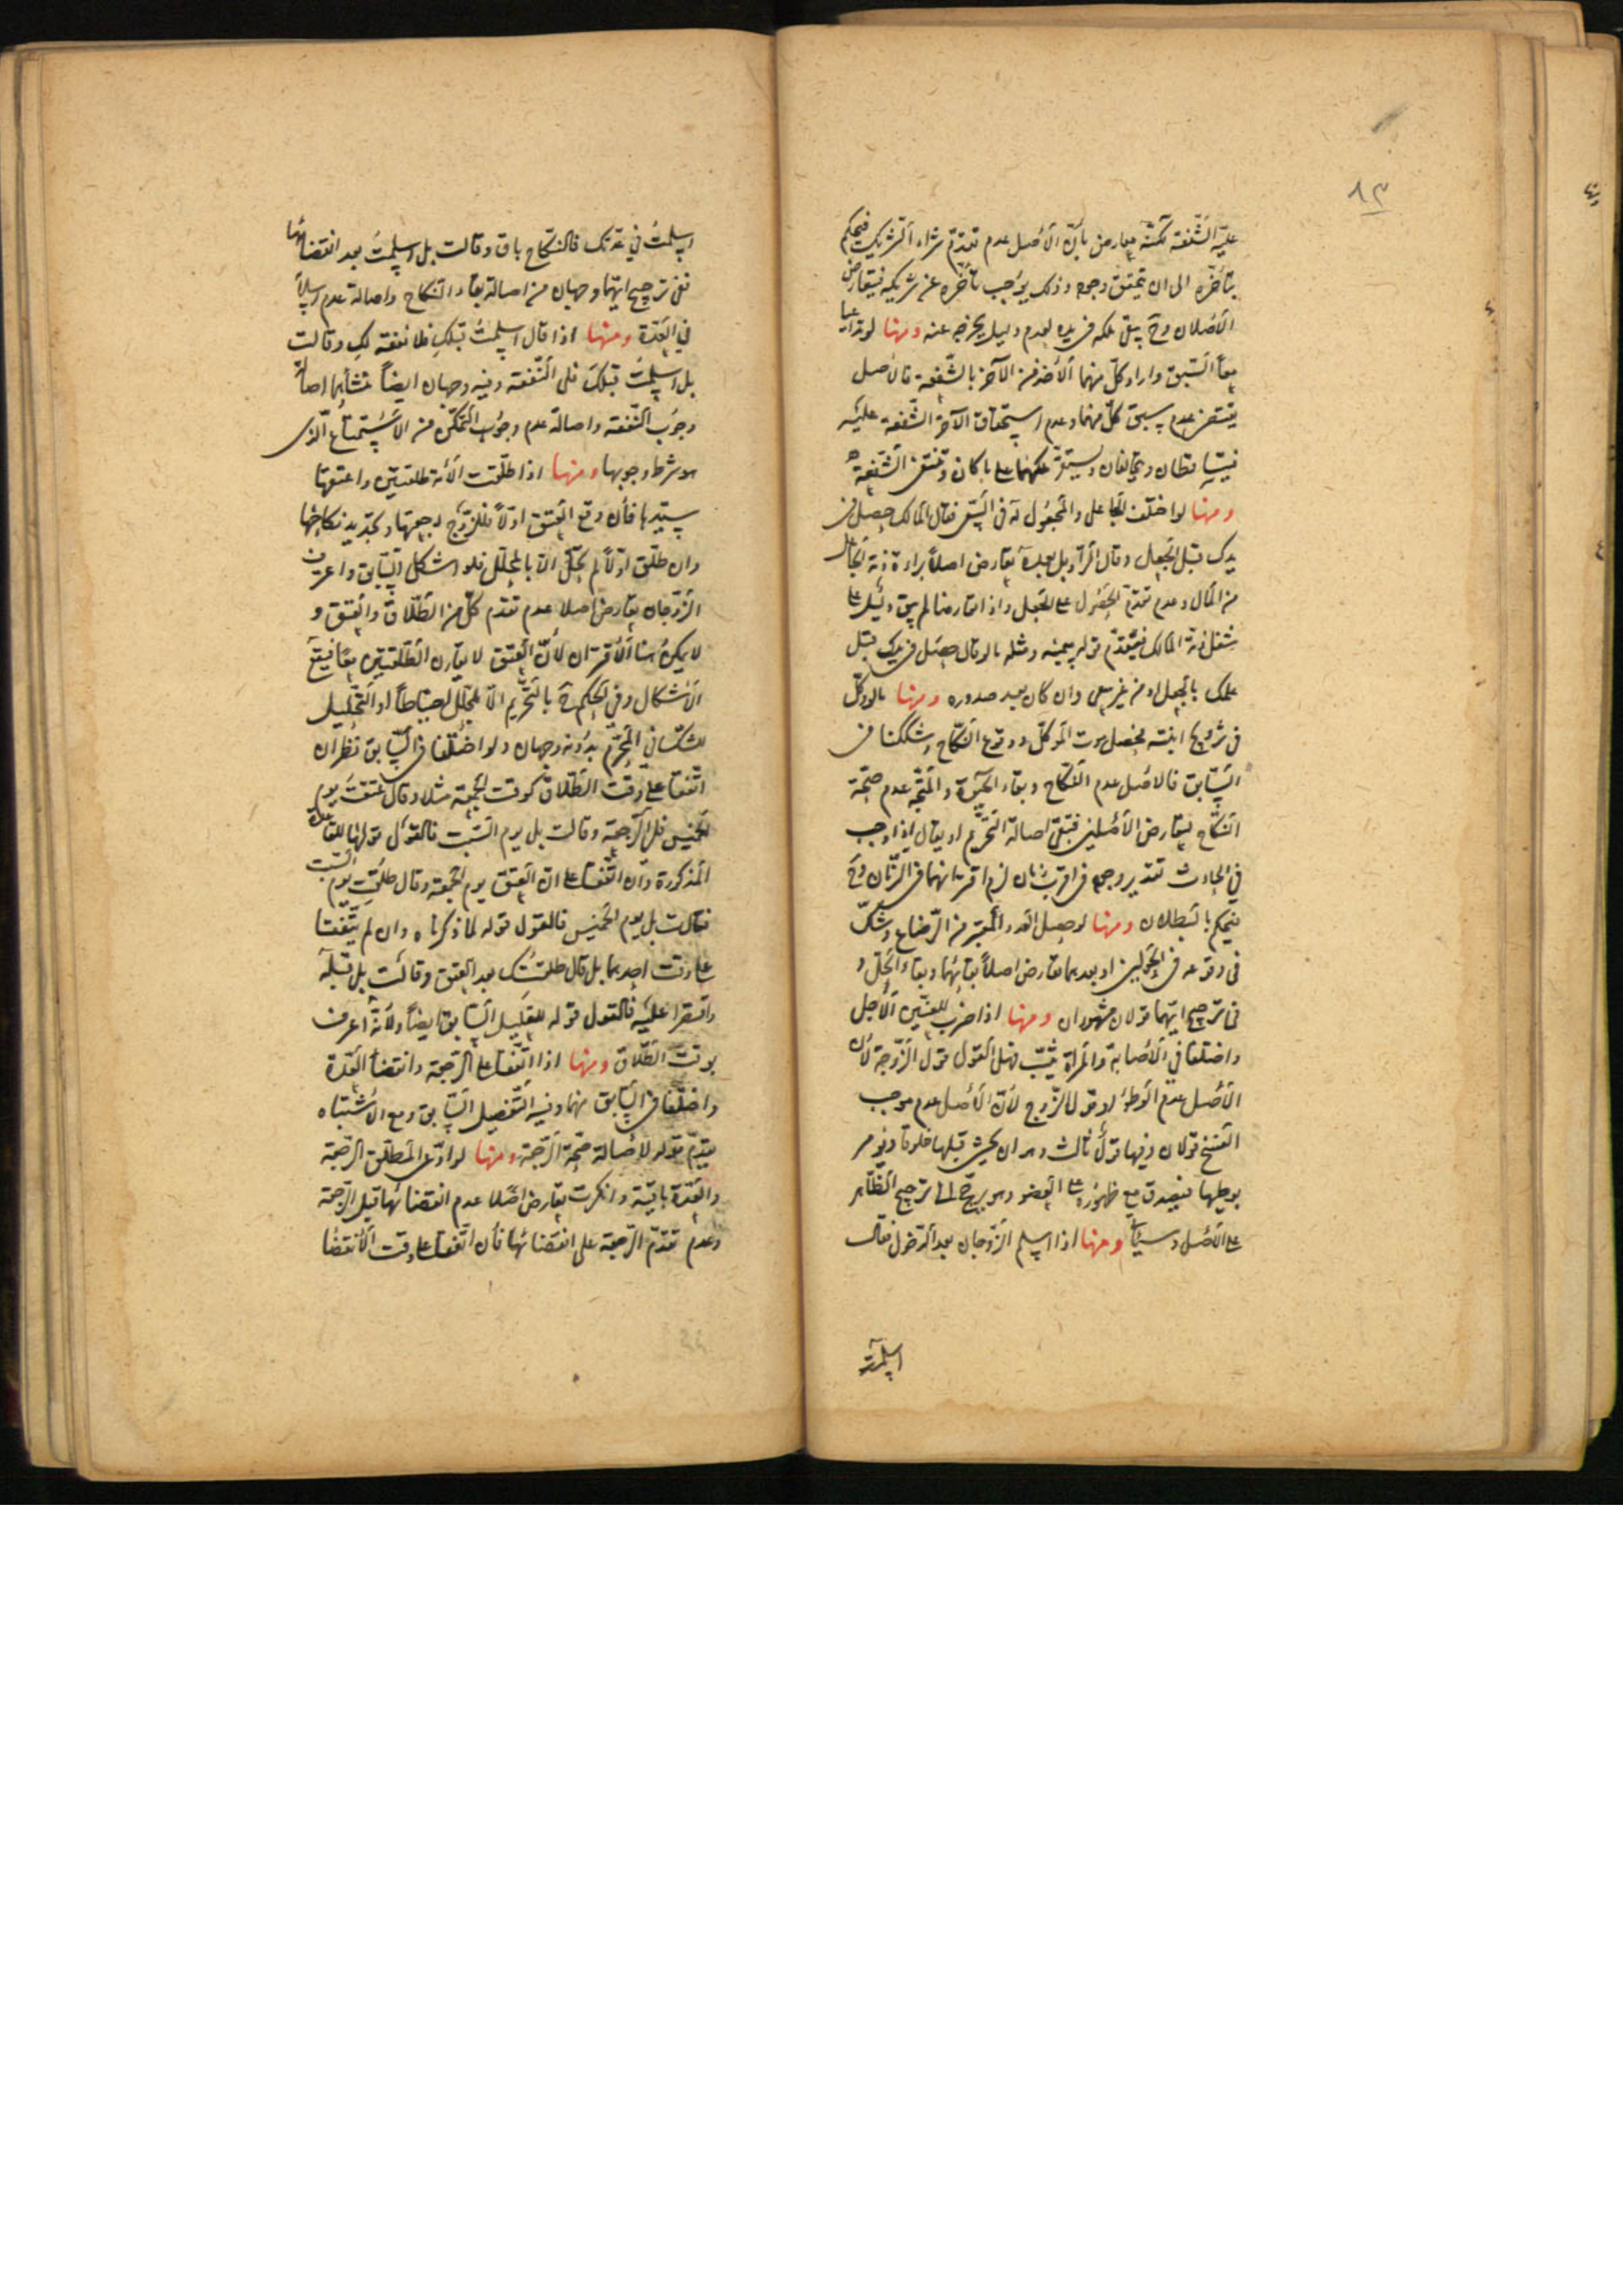 ٨٣
عليه الشفعة لكنّه معارض بأنّ الأصل عدم تقدّم شراء الشريك فيحكم
بتأخّره الى ان يتحقق وجوده وذلك يوجب تأخّره عن شريكه فيتعارض
الأصلان وح يبقى ملكه في يده لعدم دليل يخرجه عنه ومنها لو تداعيا
معاً السّبق واراد كلّ منهما الأخذ من الآخر بالشّفعة فالأصل
يقتضى عدم سبق كلّ منهما وعدم استحقاق الآخر الشّفعة عليه
فيتساقطان ويحالفان ويستقرّ ملكهما على ما كان وتنتفى الشّفعة
ومنها لو اختلف الجاعل والمجعول له في السّعى فقال المالك حصل في
يدك قبل الجعل وقال الرّاد بل بعده تعارض اصلا براءة ذمّة الجاعل
من المال وعدم تقدّم الحصول على الجعل واذا تعارضا لم يبق دليل على
شغل ذمّة المالك فيقدّم قوله بيمينه ومثله ما لو قال حصل في يدك قبل
علمك بالجعل او من غير سعى وان كان بعد صدوره ومنها ما لو وكّل
فى تزويج ابنته فحصل موت الموكّل ووقوع النّكاح وشككنا في
السّابق فالأصل عدم النّكاح وبقاء الحيوة والمتّجه عدم صحّة
النّكاح لتعارض الأصلين فتبقى اصالة التحريم او يقال اذا وجب
في الحادث تقدير وجوده في اقرب زمان لزم اقترانهما في الزّمان وح
فيحكم بالبطلان ومنها لو حصل القدر المعتبر من الرّضاع وشكّ
فى وقوعه في الحولين او بعدهما تعارض اصلا بقائهما وبقاء الحلّ و
فى ترجيح ايّهما قولان مشهوران ومنها اذا ضرب للعنّين الأجل
واختلفا في الأصابة والمرأة ثيّب فهل القول قول الزّوجة لأنّ
الأصل عدم الوطؤ او قول الزّوج لأنّ الأصل عدم موجب
الفسخ قولان وفيها قول ثالث وهو ان يحشى قبلها خلوقا ويؤمر
بوطيها فيصدق مع ظهوره على العضو وهو يرجع الى ترجيح الظّاهر
على الأصل وسيأتي ومنها اذا اسلم الزّوجان بعد الدّخول فقال
اسلمت
اسلمتُ في عدّتك فالنّكاح باق وقالت بل اسلمتَ بعد انقضائها
ففى ترجيح ايّهما وجهان من اصالة بقاء النّكاح واصالة عدم اسلامه
في العدّة ومنها اذا قال اسلمتُ قبلكِ فلا نفقة لكِ وقالت
بل اسلمتُ قبلكَ فلى النّفقة وفيه وجهان ايضاً منشأهما اصالة
وجوب النّفقة واصالة عدم وجوب التمكّن من الأستمتاع الّذى
هو شرط وجوبها ومنها اذا طلّقت الأمة طلقتين واعتقها
سيّدها فأن وقع العتق اوّلاً فللزّوج رجعتها وتجديد نكاحها
وان طلّق اوّلاً لم تحلّ الّا بالمحلّل فلو اشكل السّابق واعترف
الزّوجان تعارض اصلا عدم تقدّم كلّ من الطّلاق والعتق و
لا يمكن هنا الأقتران لأنّ العتق لا يقارن الطّلقتين معاً فيقع
الأشكال وفي الحكم ح بالتحريم الّا بمحلّل احتياطاً او التّحليل
للشكّ في المحرّم بدونه وجهان ولو اختلفا في السّابق نظر ان
اتّفقا على وقت الطّلاق كوقت الجمعة مثلا وقال عتقت يوم
الخميس فلى الرّجعة وقالت بل يوم السّبت فالقول قولها للقاعدة
المذكورة وان اتّفقا على انّ العتق يوم الجمعة وقال طلّقت يوم السّبت
فقالت بل يوم الخميس فالقول قوله لما ذكرناه وان لم يتّفقا
على وقت احدهما بل قال طلّقتك بعد العتق وقالت بل قبله
واقتصرا عليه فالقول قوله للتعليل السّابق ايضاً ولأنّه اعرف
بوقت الطّلاق ومنها اذا اتّفقا على الرّجعة وانقضاء العدّة
واختلفا في السّابق منهما وفيه التّفصيل السّابق ومع الأشتباه
يقدّم قوله لأصالة صحّة الرّجعة ومنها لو ادّعى المطلّق الرّجعة
والعدّة باقية وانكرت تعارض اصلا عدم انقضائها قبل الرّجعة
وعدم تقدّم الرّجعة على انقضائها فأن اتّفقا على وقت الأنقضاء